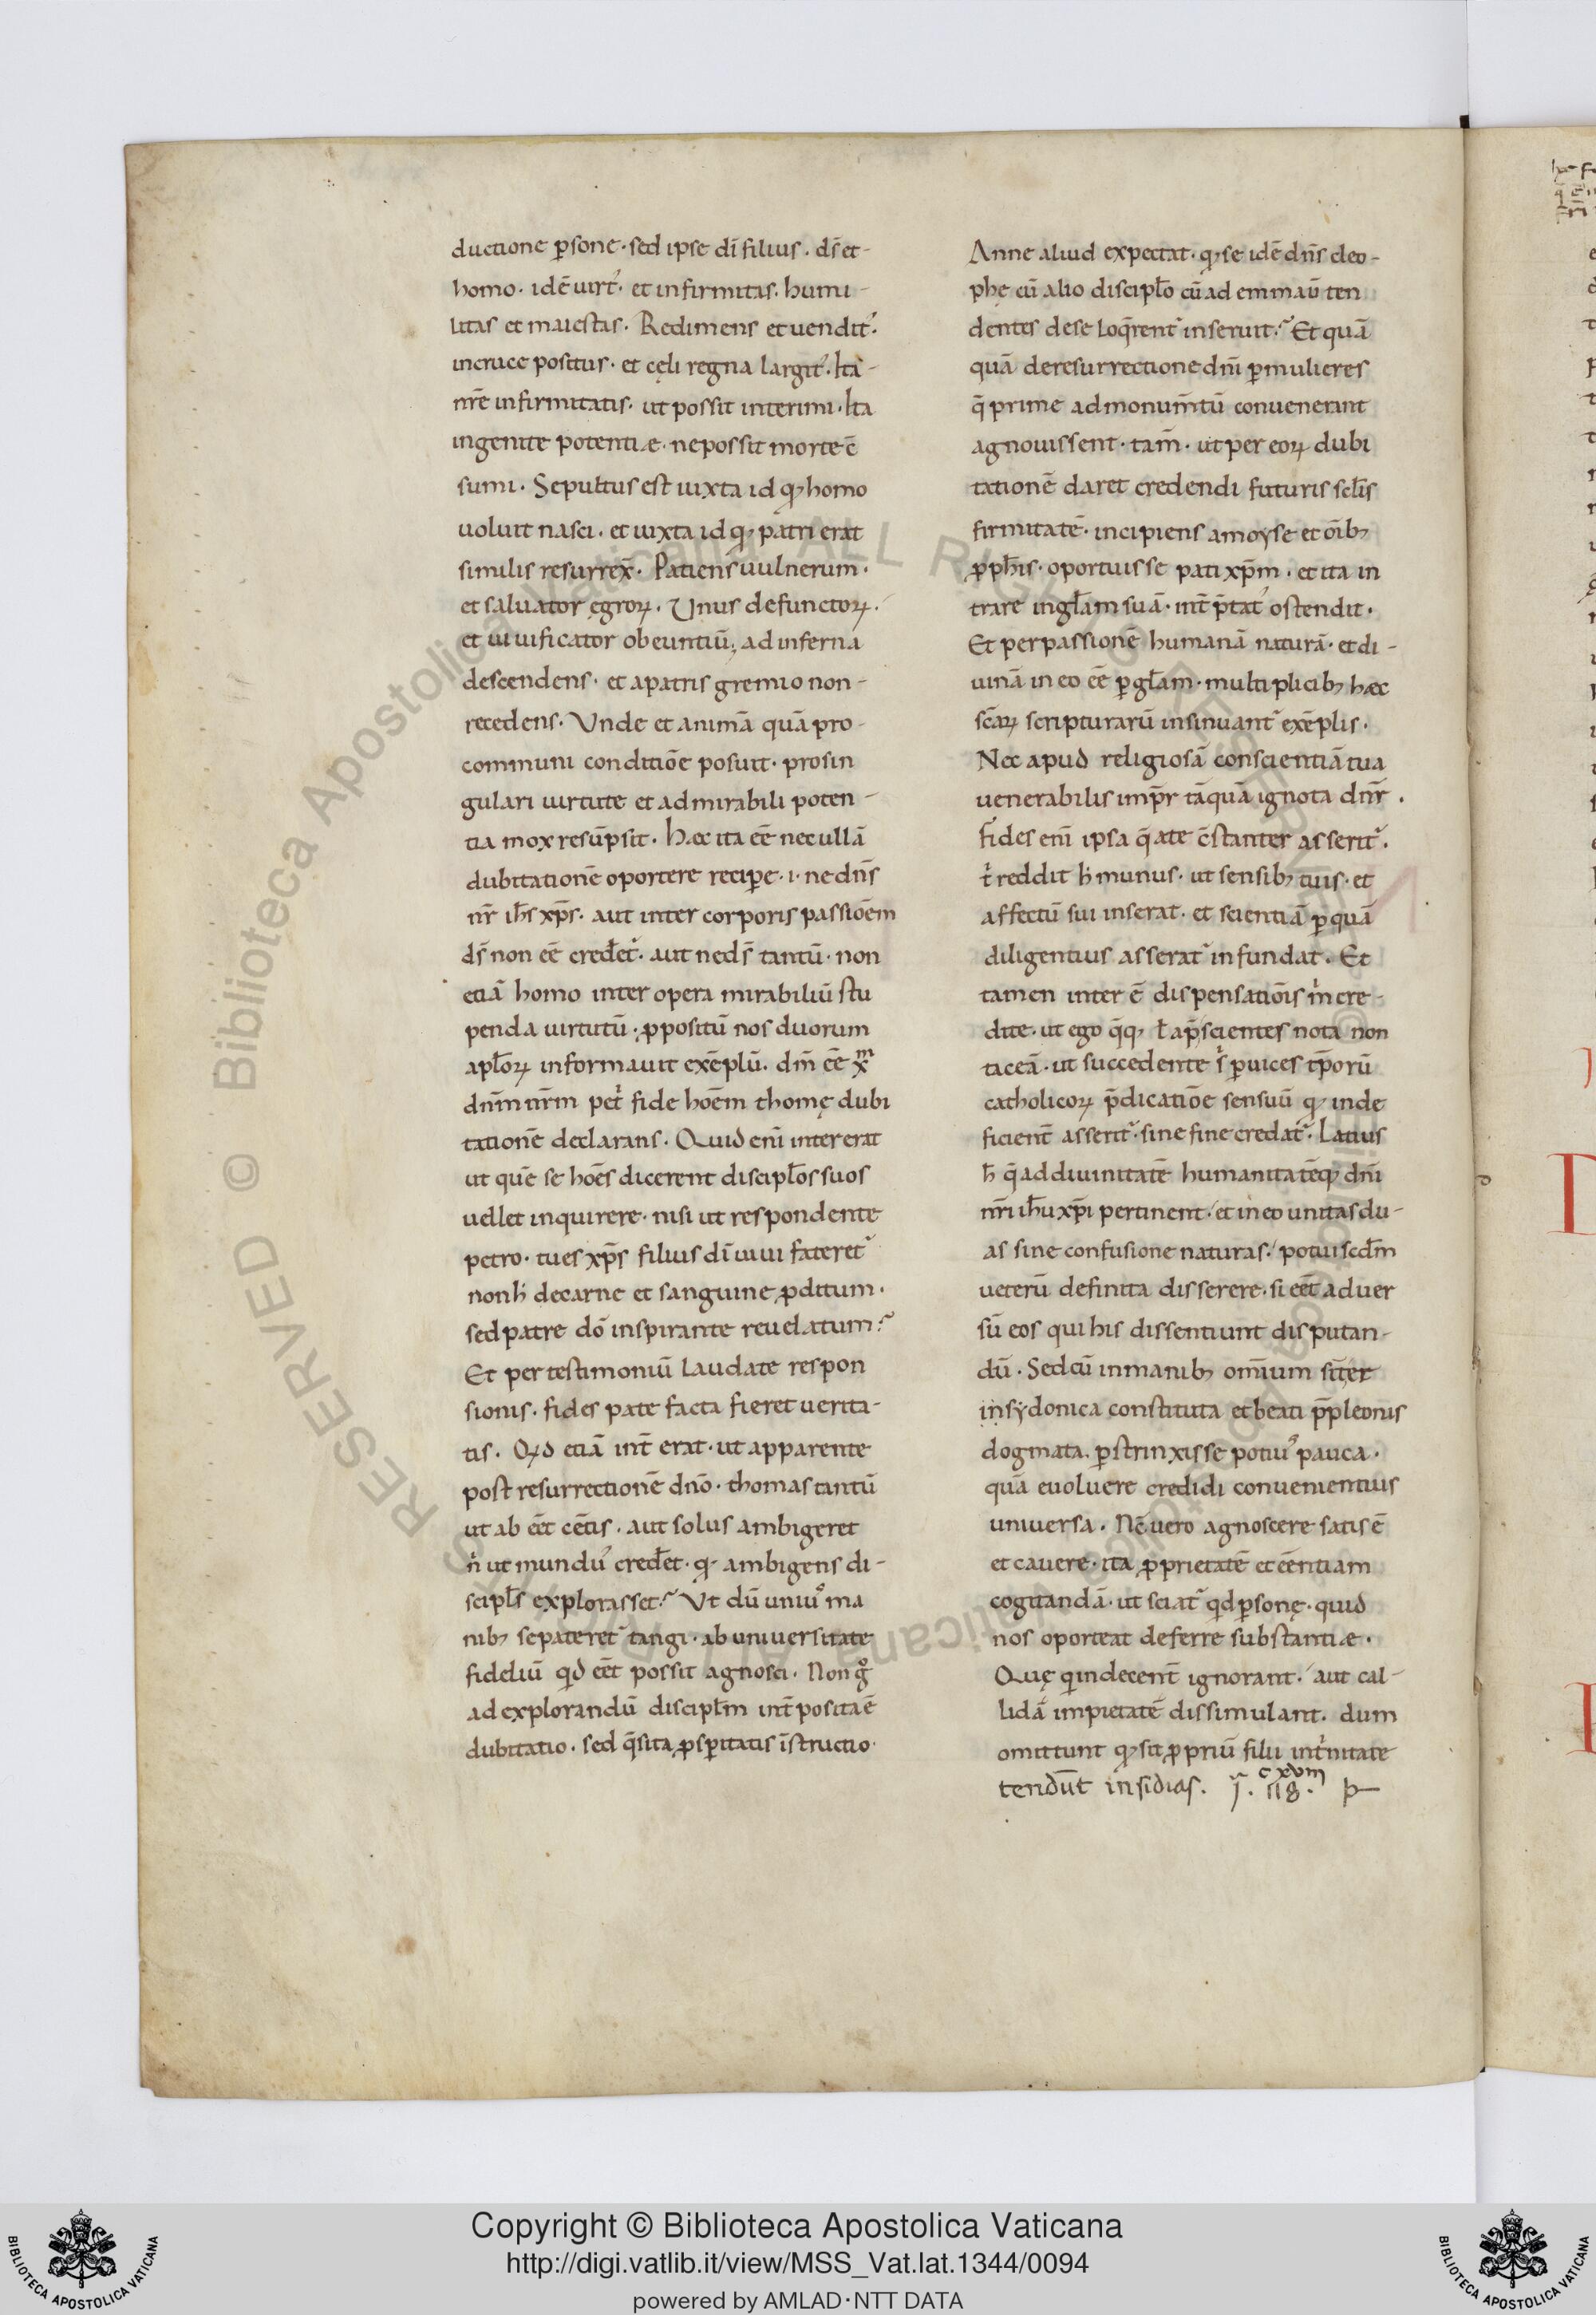 ductione ꝑsone · sed ipse dī filius . dſ̄ et-
homo · idē uirt᷒ · et infirmitas . humi-
litas et maiestas . Redimens et uendit᷒ .
incruce positus · et cęli regna largit᷒ . Ita-
nr̄e infirmitatis . ut possit interimi . Ita
ingenite potentiæ · ne possit morte c̄
sumi . Sepultus est iuxta id qđ homo
uoluit nasci . et iuxta id qđ patri erat
similis resurrex̄ . Patiens uulnerum .
et saluator ęgroꝝ . Unus defunctoꝝ .
et uiuificator obeuntiū ; ad inferna
descendens . et apatris gremio non-
recedens . Vnde et animā quā pro-
communi conditiōe posuit . prosin
gulari uirtute et admirabili poten-
tia mox resūpsit . Hæc ita eē nec ullā
dubitationē oportere recipe · i · ne dn̄s
nr̄ ihs̄ xp̄s . aut inter corporis passiōem
ds̄ non eē credet᷒ . aut ne ds̄ tantū · non
etiā homo inter opera mirabiliū stu
penda uirtutū · ꝓpositū nos duorum
apl̄oꝝ informauit exēplū . dn̄i eē x̄m
dn̄m nr̄m pet᷒ fide hoēm thomę dubi
tationē declarans . Quid eni intererat
ut quē se hoēs dicerent discipl̄os suos
uellet inquirere . nisi ut respondente
petro · tu es xp̄s filius dī uiui fateret᷒
non h̄ decarne et sanguine ꝓditum .
sed patre dō inspirante reuelatum ?
Et per testimoniū laudate respon
sionis . fides pate facta fieret uerita-
tis . Qđ etiā int̄ erat · ut apparente
post resurrectionē dnō · thomas tantū
ut ab eēt cēt̄is . aut solus ambigeret
n̄ ut mundu᷒ credet̄ · qđ ambigens di-
scipl̄s explorasset ? Vt dū uniu᷒ ma
nibꝫ se pateret᷒ tangi · ab uniuersitate
fideliū qđ eēt possit agnosci . Non gͦ
ad explorandū discipl̄m int̄posita ē
dubitatio . sed q̄sita ꝓspitatis īstructio·
Anne aliud expectat · qđ se idē dn̄s cleo-
phę cū alio discipl̄o cū ad emmaū ten
dentes dese loq̄rent᷒ inseruit ? Et quā
quā deresurrectione dn̄i ꝑmulieres
q̄ prime admonum̄tū conuenerant
agnouissent · tam̄ · ut per eoꝝ dubi
tationē daret credendi futuris scl̄is
firmitatē · incipiens amoẏse et oībꝫ
ꝓph̄is · oportuisse pati xp̄m . et ita in
trare ingl̄am suā · int̄ p̄tat᷒ ostendit .
Et per passionē humanā naturā · et di-
uinā in eo eē ꝑ gl̄am · multiplicibꝫ hæc
scāꝝ scripturarū insinuant᷒ exēplis .
Nec apud religiosā conscientiā tua
uenerabilis imp̄r tāquā ignota dnr̄ .
fides eni ipsa q̄ ate c̄stanter asserit᷒ .
t̄ reddit h̄ munus · ut sensibꝫ tuis · et
affectū sui inserat . et scientiā ꝑ quā
diligentius asserat᷒ infundat . Et
tamen inter ē dispensatiōis m̄ cre-
dite · ut ego q̄qꝫ ł ap̄ scientes nota non
taceā · ut succedente s̄ ꝑ uices tp̄orū
catholicoꝝ p̄dicatiōe sensuū qđ inde
ficient̄ asserit᷒ · sine fine credat᷒ . Latius
h̄ q̄ ad diuinitatē humanitatēqꝫ dn̄i
nr̄i ih̄u xp̄i pertinent · et in eo unitas du-
as sine confusione naturas · potui scdm̄
ueterū definita disserere · si eēt aduer
sū eos qui his dissentiunt disputan-
dū . Sed cū inmanibꝫ omīum sit̄ et
insẏdonica constituta et beati p̄p leonis
dogmata . ꝑstrinxisse potiu᷒ pauca .
quā euoluere credidi conuenientius
uniuersa . Nc̄ uero agnoscere satis ē
et cauere · ita ꝓprietatē et eēntiam
cogitandā · ut sciat᷒ qd ꝑsonę · quid
nos oporteat deferre substantiæ .
Quę qi indecent̄ ignorant · aut cal-
lidā impietatē dissimulant . dum
omittunt qđ sit ꝓpriū filii int̄nitate
tendūt insidias .
Copyright © Biblioteca Apostolica Vaticana
http://digi.vatlib.it/view/MSS_Vat.lat.1344/0094
powered by AMLAD·NTT DATA
BIBLIOTECA APOSTOLICA VATICANA
BIBLIOTECA APOSTOLICA VATICANA